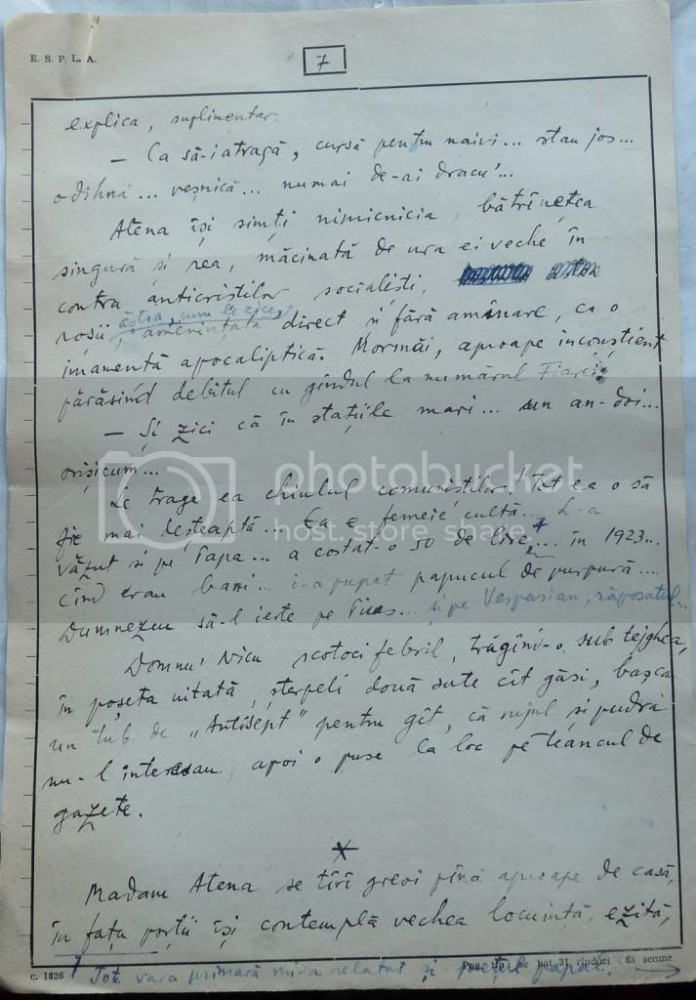 E. S. P. L. A.
7
explica, suplimentar.
— Ca să-i atragă, cursă pentru naivi... stau jos...
odihnă... veșnică... numai de-ai dracu'...
Atena își simți nimicnicia, bătrînețea
singură și rea, măcinată de ura ei veche în
contra anticriștilor socialiști,
ăștia, cum le zice,
roșii, amenințata direct și fără amînare, ca o
apocaliptică. Mormăi, aproape inconștient
părăsind debitul cu gîndul la numărul Fiarei:
— Și zici că în stațiile mari... un an-doi...
orișicum...
Le trage ea chiulul comuniștilor! Tot ea o să
fie mai deșteaptă... Ea e femeie cultă... L-a
văzut și pe Papa... a costat-o 50 de lire... în 1923...
cînd erau bani... i-a pupat papucul de purpură....
Dumnezeu să-l ierte pe Pius... și pe Vespasian, răposatul...
Domnu' Nicu scotoci febril, trăgînd-o sub tejghea,
în poșeta uitată, șterpeli două sute cît găsi, bașca
un tub de „Antisept" pentru gît, că rujul și pudra
nu-l interesau, apoi o puse la loc pe teancul de
gazete.
Madam Atena se tîrî greoi pînă aproape de casă,
în fața porții își contemplă vechea locuință, ezită,
se bat 31 rînduri 63 semne
c. 1826
Tot vara primară mi-a relatat și prețul papal.
photobucket
host. store. share.